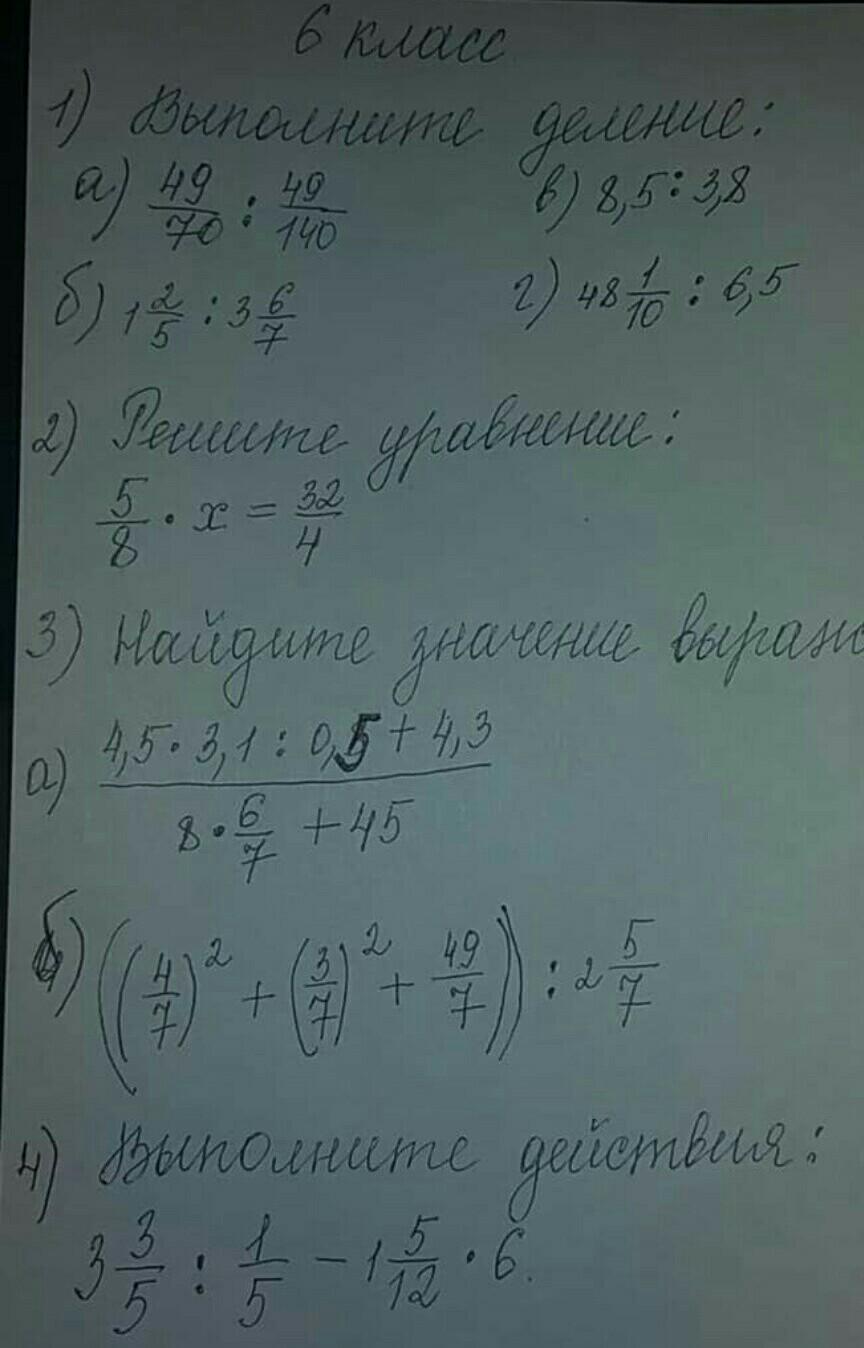 6 класс
1) Выполните деление:
а) 49/70 : 49/140   в) 8,5 : 3,8
б) 1 2/5 : 3 6/7   г) 48 1/10 : 6,5
2) Решите уравнение:
5/8 · x = 32/4
3) Найдите значение выраж
а) (4,5 · 3,1 : 0,5 + 4,3)/(8 · 6/7 + 45)
б) ((4/7)² + (3/7)² + 49/7)) : 2 5/7
4) Выполните действия:
3 3/5 : 1/5 − 1 5/12 · 6.